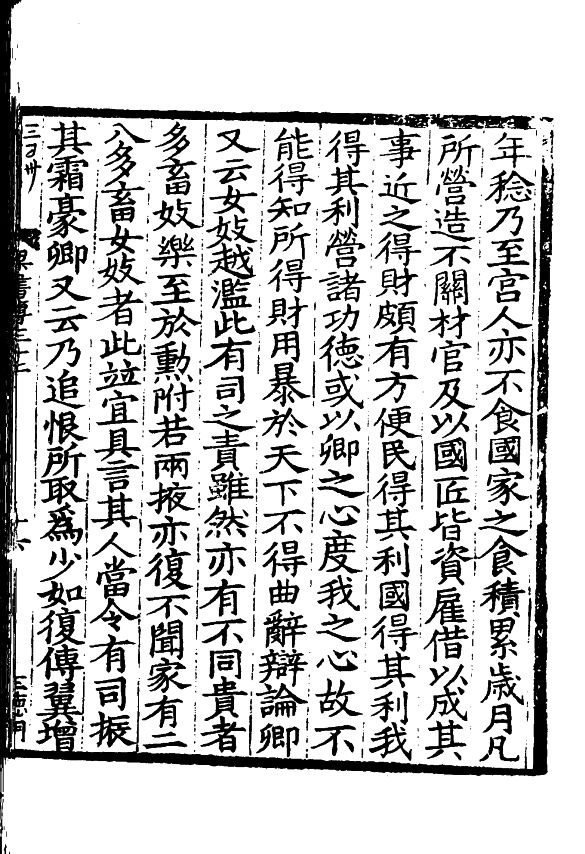 年稔乃至宮人亦不食國家之食積累歲月凡
所營造不關材官及以國匠皆資雇借以成其
事近之得財頗有方便民得其利國得其利我
得其利營諸功德或以卿之心度我之心故不
能得知所得財用暴於天下不得曲辭辯論卿
又云女妓越濫此有司之責雖然亦有不同貴者
多畜妓樂至於勳附若兩掖亦復不聞家有二
八多畜女妓者此並宜具言其人當令有司振
其霜豪卿又云乃追恨所取爲少如復傅翼增